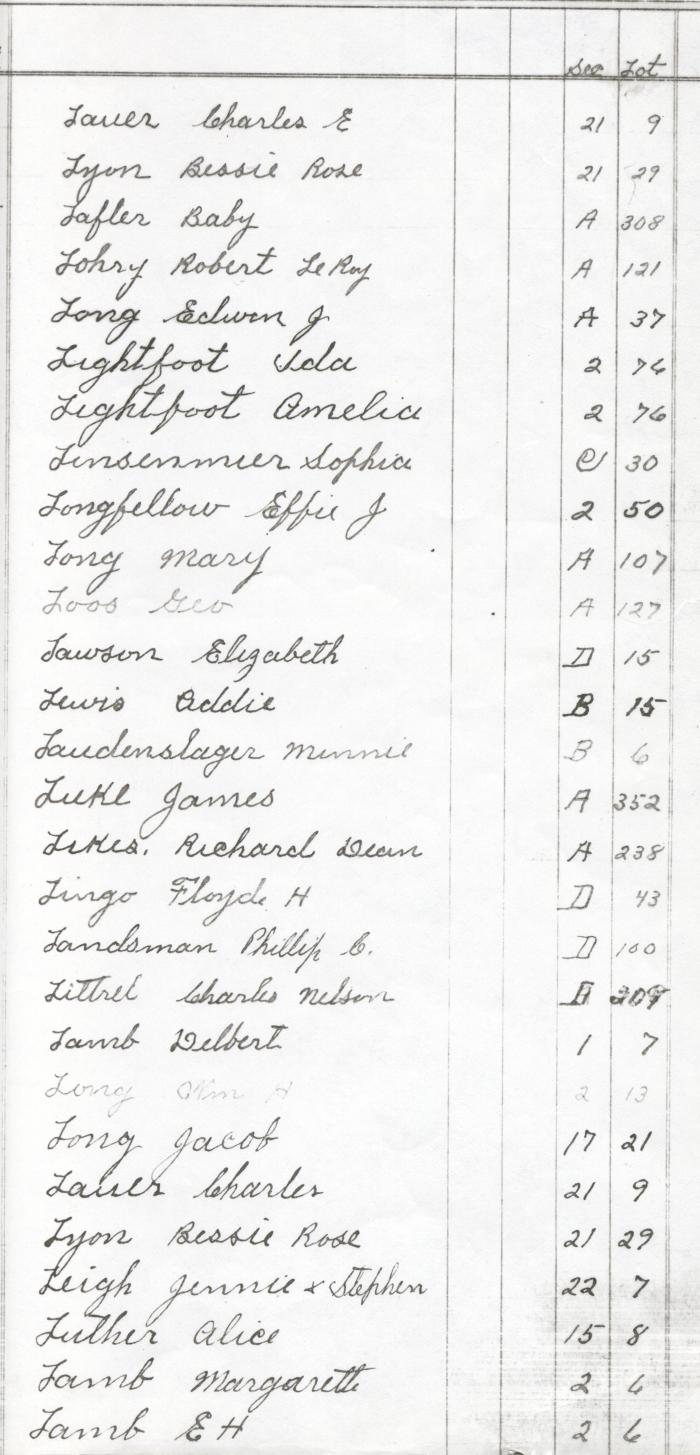 Sec Lot
Lauer Charles E 21 9
Lyon Bessie Rose 21 29
Lafler Baby A 308
Lohry Robert LeRoy A 121
Long Edwin J A 37
Lightfoot Ida 2 76
Lightfoot Amelia 2 76
Linsenmier Sophia C 30
Longfellow Effie J 2 50
Long Mary A 107
Loos Geo A 127
Lawson Elizabeth D 15
Lewis Addie B 15
Laudenslager Minnie B 6
Luke James A 352
Likes. Richard Dean A 238
Lingo Floyd H D 43
Landsman Phillip C. D 100
Littrel Charles Nelson
Lamb Delbert 1 7
Long Wm H 2 13
Long Jacob 17 21
Lauer Charles 21 9
Lyon Bessie Rose 21 29
Leigh Jennie & Stephen 22 7
Luther Alice 15 8
Lamb Margarett 2 6
Lamb E H 2 6